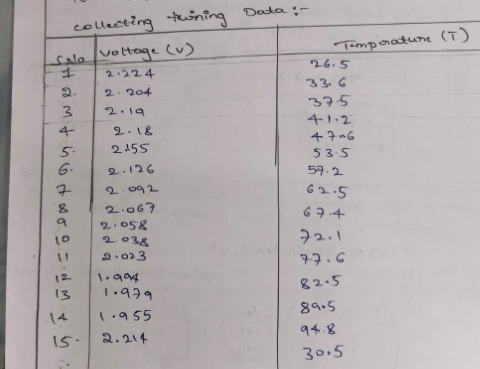 collecting twining Data :-
S.No Voltage (V) Temporature (T)
1 2.224 26.5
2. 2.204 33.6
3 2.19 37.5
4 2.18 41.2
5. 2.155 47.6
6. 2.126 53.5
7 2.092 57.2
8 2.067 62.5
9 2.058 67.4
10 2.038 72.1
11 2.023 77.6
12 1.994 82.5
13 1.979 89.5
14 1.955 94.8
15. 2.214 30.5